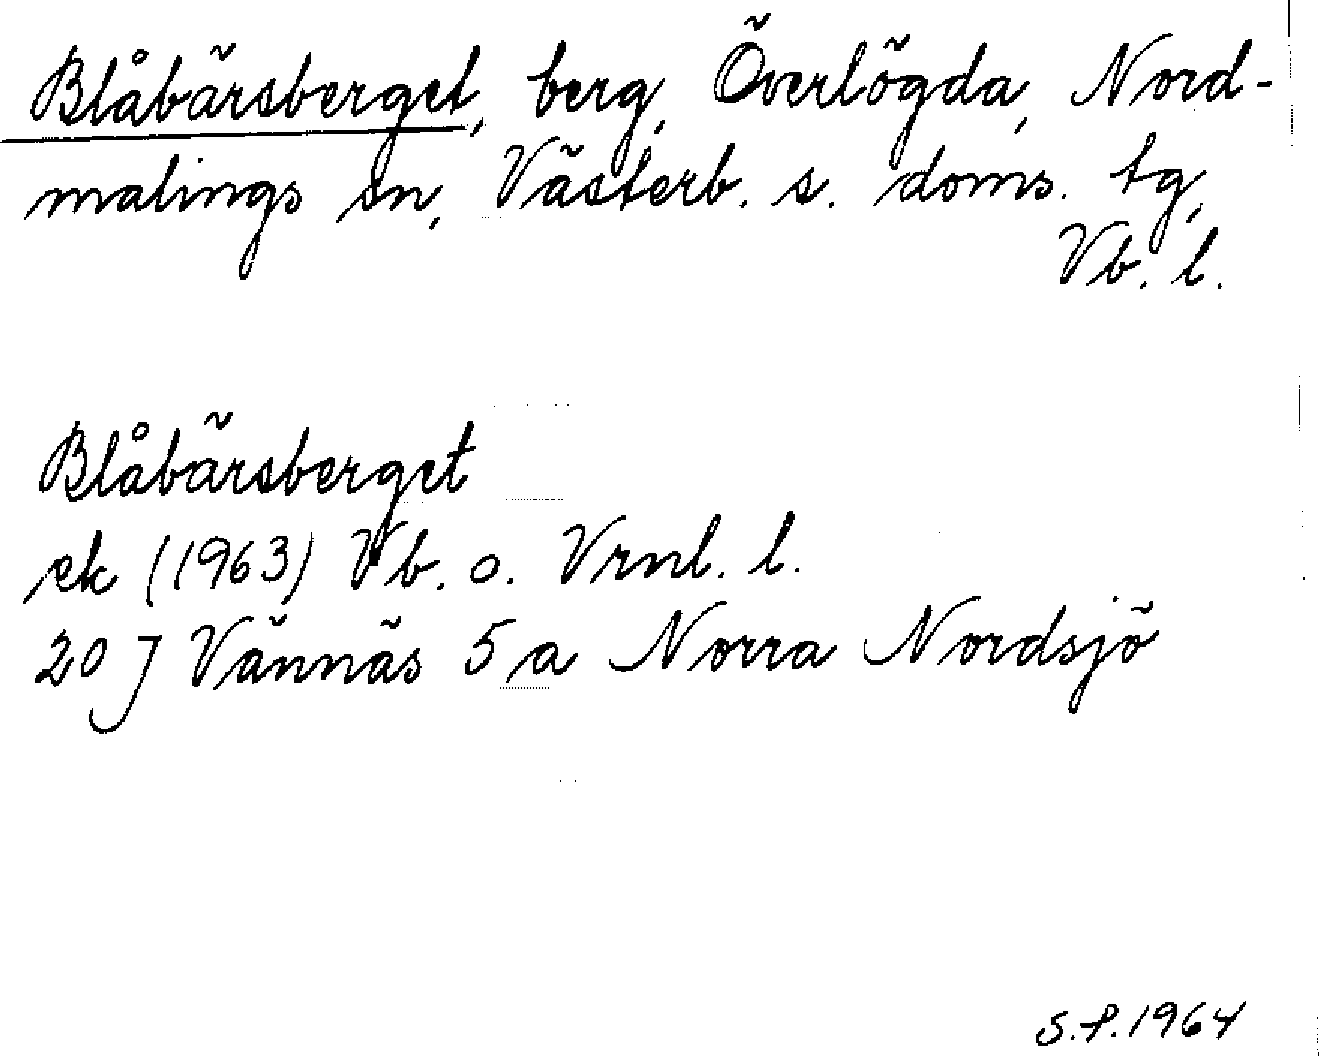 Blåbärsberget, berg, Överlögda, Nord-
malings sn, Västerb. s. doms. tg,
Vb. l.
Blåbärsberget
ek (1963) Vb. o. Vrnl. l.
20 J Vännäs 5 a Norra Nordsjö
S.P. 1964